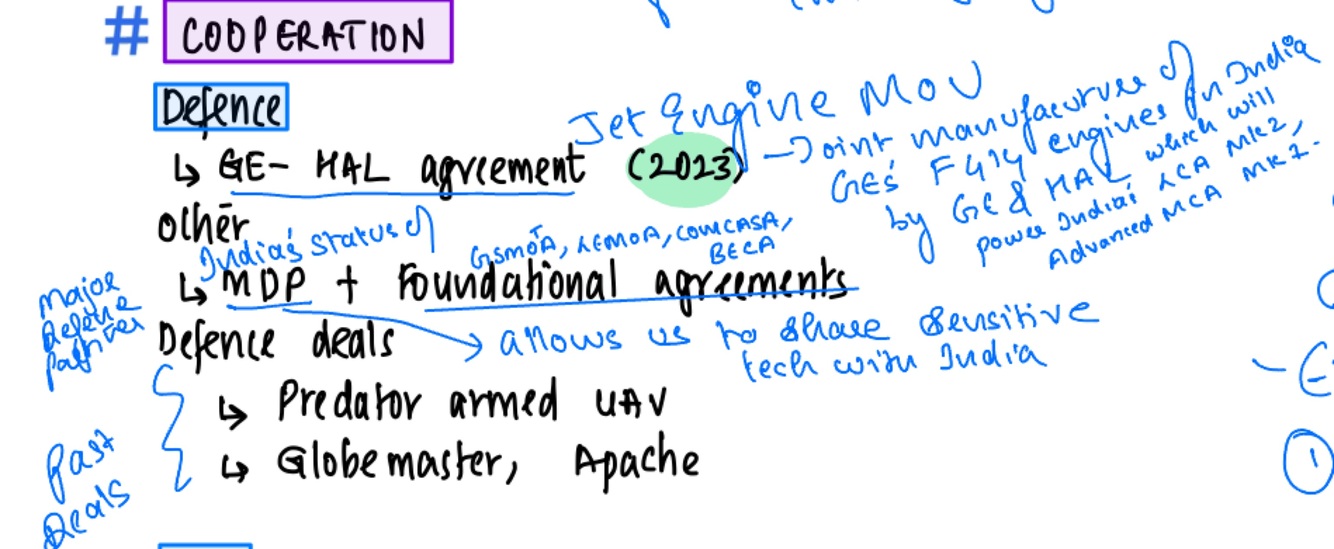 # COOPERATION
Defence
Jet Engine MoU
↳ GE- HAL agreement (2023)
→ Joint manufacturure of
GE's F414 engines in India
by GE & HAL which will
power India's LCA MK2,
Advanced MCA MK1.
other
India's status of
GSmoTA, LEMOA, COMCASA,
BECA
↳ MDP + Foundational agreements
major
defence
partner
→ allows us to share sensitive
tech with India
Defence deals
↳ Predator armed UAV
↳ Globemaster, Apache
Past
deals
①